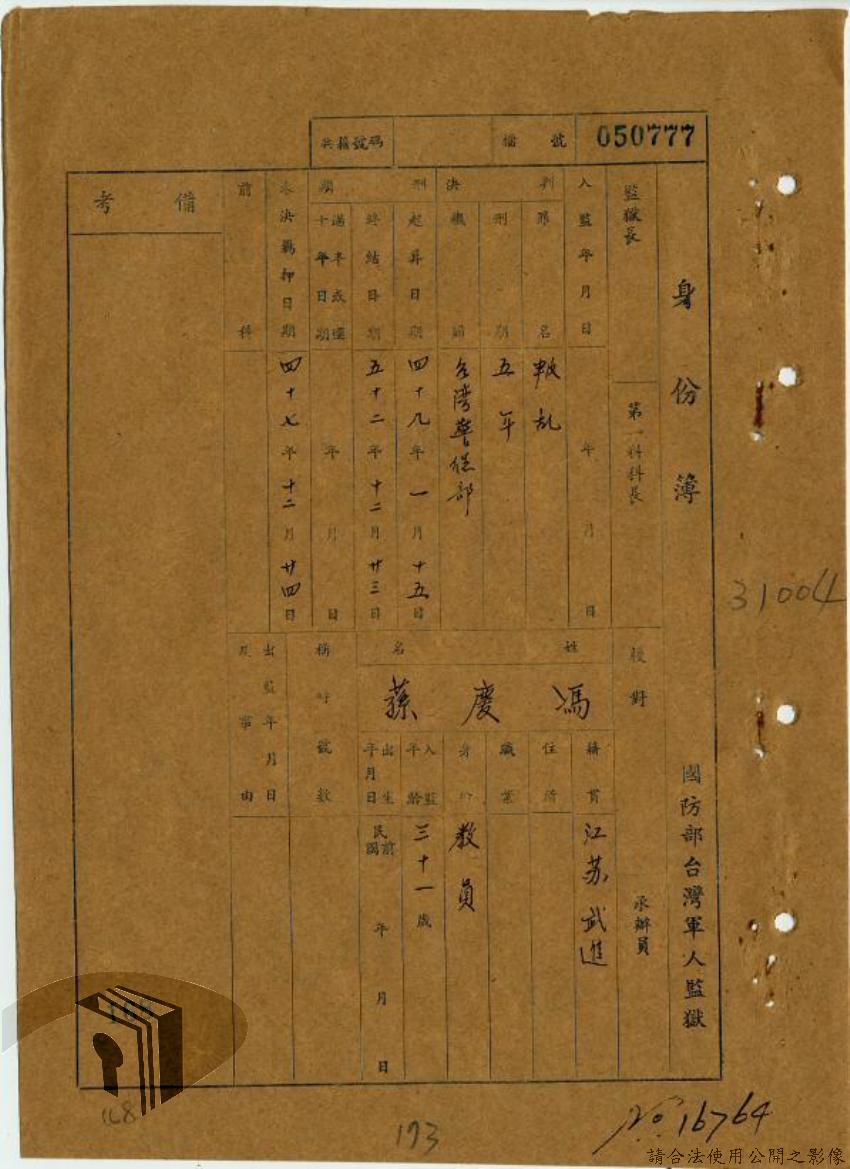 050777
檔號
共籍號碼
身份簿
國防部台灣軍人監獄
監獄長
第一科科長
校對
承辦員
入監年月日
年月日
判決
罪名
叛乱
刑期
五年
機關
台湾警偹部
刑期
起算日期
四十九年一月十五日
終結日期
五十二年十二月廿三日
滿半或逾十年日期
年月日
未決羈押日期
四十七年十二月廿四日
前科
備考
姓名
馮慶蓀
籍貫
江苏武進
住所
職業
身份
教員
入監年齡
三十一歲
出生年月日
民國前
年月日
稱呼號數
出監年月日及事由
31004
168
168
173
No.16764
請合法使用公開之影像